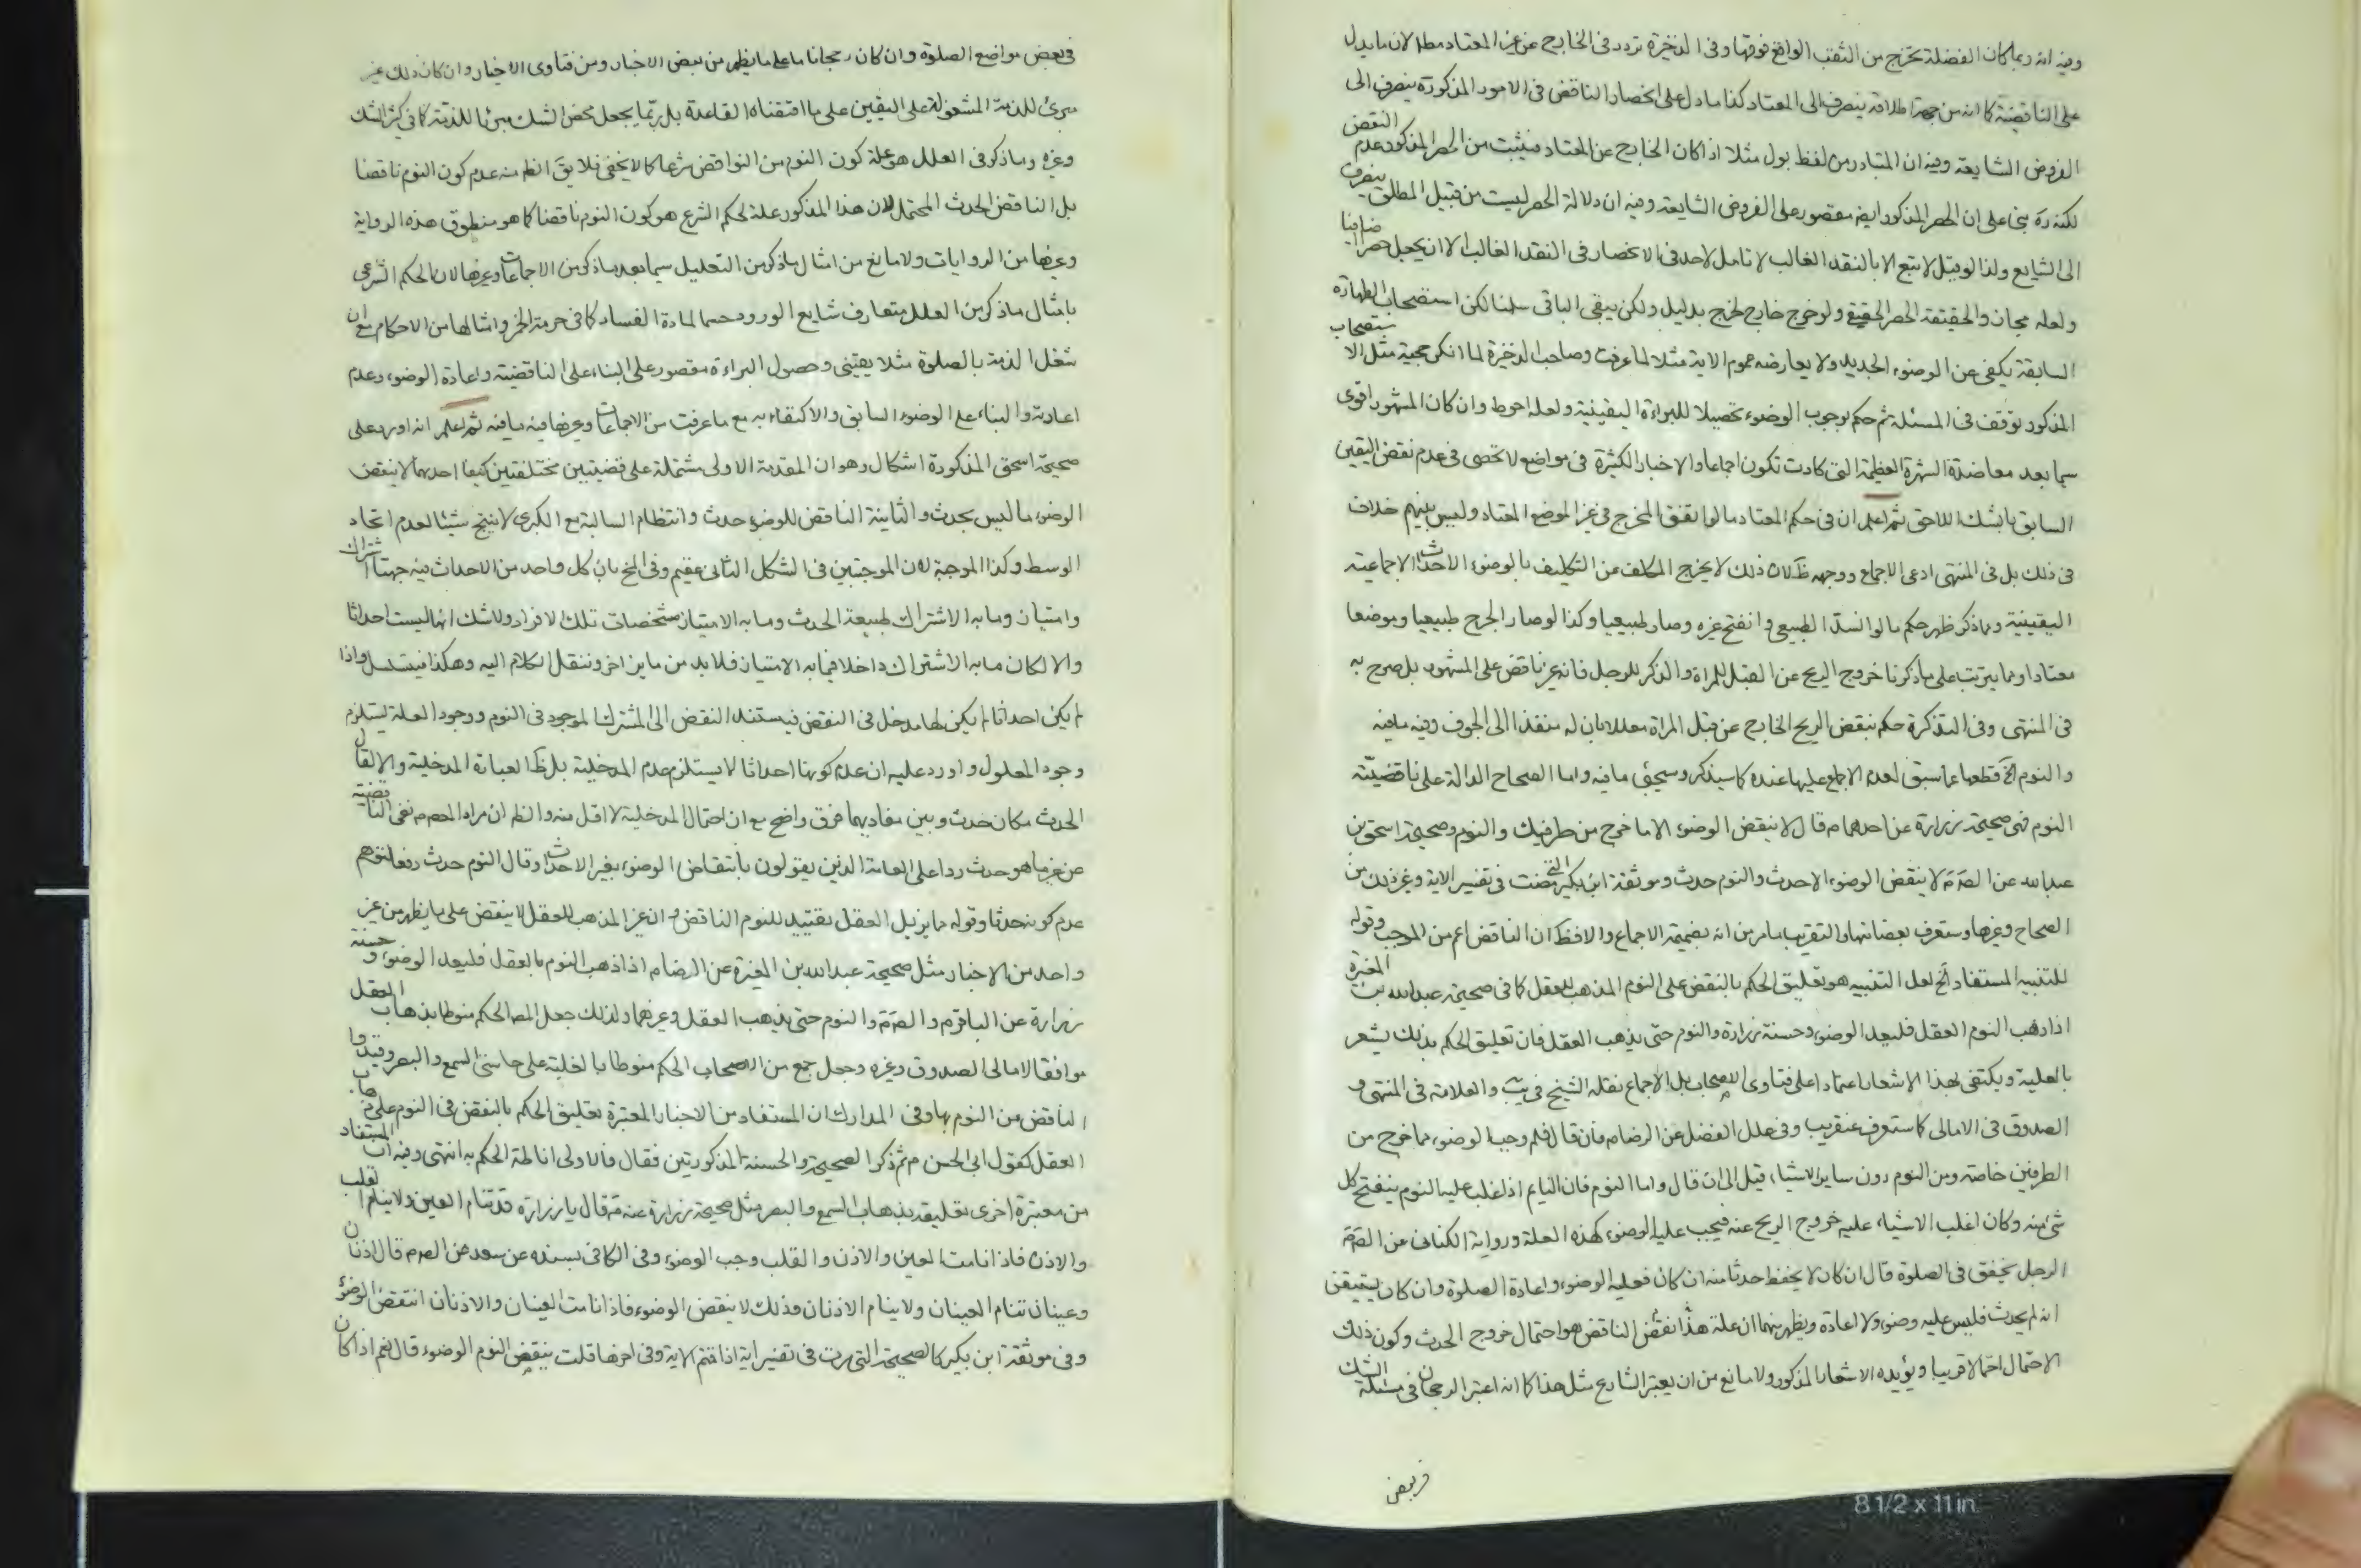 وفيه انه ربما كان الفضلة تخرج من الثقب الواقع فوقها وفى الذخيرة تردد فى الخارج عن غير المعتاد مطلا لان ما يدل
على الناقضية كما انه من جهة اطلاقه ينصرف الى المعتاد كذا ما دل على انحصار الناقض فى الامور المذكورة ينصرف الى
الفروض الشايعة وفيه ان المتبادر من لفظ بول مثلا اذا كان الخارج عن المعتاد فيثبت من الحصر المذكور عدم النقض
لكنه رده بنى على ان الحصر المذكور ايضه مقصور على الفروض الشايعة وفيه ان دلالة الحصر ليست من قبيل المطلق ينصرف
الى الشايع ولذا لو قيل لا تبع الا بالنقد الغالب لا تامل لاحد فى الانحصار فى النقد الغالب الا ان يجعل حصرا اضافيا
ولعله مجاز والحقيقة الحصر الحقيقى ولو خرج خارج لخرج بدليل ولكن يبقى الباقى سلمنا لكن استصحاب الطهارة
السابقة يكفى عن الوضوء الجديد ولا يعارضه عموم الاية مثلا لما عرفت وصاحب الذخيرة لما انكر حجية مثل الاستصحاب
المذكور توقف فى المسئلة ثم حكم بوجوب الوضوء تحصيلا للبراءة اليقينية ولعله احوط وان كان المشهور اقوى
سيما بعد معاضدة الشهرة العظيمة التى كادت تكون اجماعا والاخبار الكثيرة فى مواضع لا تحصى فى عدم نقض اليقين
السابق بالشك اللاحق ثم اعلم ان فى حكم المعتاد ما لو اتفق المخرج فى غير الموضع المعتاد وليس بينهم خلاف
فى ذلك بل فى المنتهى ادعى الاجماع ووجهه ظ لان ذلك لا يخرج المكلف عن التكليف بالوضوء الاحداث الاجماعية
اليقينية ومما ذكر ظهر حكم ما لو انسد الطبيعى وانفتح غيره وصار طبيعيا وكذا لو صار الجرح طبيعيا وموضعا
معتادا ومما يترتب على ما ذكرنا خروج الريح عن القبل للمراة والذكر للرجل فانه غير ناقض على المشهور بل صرح به
فى المنتهى وفى التذكرة حكم بنقض الريح الخارج عن قبل المراة معللا بان له منفذا الى الجوف وفيه ما فيه
والنوم الخ قطعها عما سبق لعدم الاجماع عليها عنده كما سيذكر وسيجئ ما فيه واما الصحاح الدالة على ناقضيته
النوم فهى صحيحة زرارة عن احدهما م قال لا ينقض الوضوء الا ما خرج من طرفيك والنوم وصحيحة اسحق بن
عبد الله عن الصرم لا ينقض الوضوء الا حدث والنوم حدث وموثقة ابن بكير التى مضت فى تفسير الاية وغير ذلك من
الصحاح وغيرها وستعرف بعضا منها والتقريب ما مر من انه بضميمة الاجماع والا فظ ان الناقض اعم من الموجب وقوله
للتنبيه المستفاد الخ لعل التنبيه هو تعليق الحكم بالنقض على النوم المذهب للعقل كما فى صحيحة عبد الله بن المغيرة
اذا ذهب النوم العقل فليعد الوضوء وحسنة زرارة والنوم حتى يذهب العقل فان تعليق الحكم بذلك يشعر
بالعلية ويكتفى بهذا الاشعار اعتمادا على فتاوى الاصحاب بل الاجماع نقله الشيخ فى يب والعلامة فى المنتهى و
الصدوق فى الامالى كما ستعرف عنقريب وفى علل الفضل عن الرضا م فان قال فلم وجب الوضوء مما خرج من
الطرفين خاصة ومن النوم دون ساير الاشياء قيل الى ان قال واما النوم فان النايم اذا غلب عليه النوم ينفتح كل
شئ منه وكان اغلب الاشياء عليه خروج الريح عنه فيجب عليه الوضوء لهذه العلة ورواية الكنانى عن الصرم
الرجل يخفق فى الصلوة قال ان كان لا يحفظ حدثا منه ان كان فعليه الوضوء واعادة الصلوة وان كان يستيقن
انه لم يحدث فليس عليه وضوء ولا اعادة ويظهر منهما ان علة هذا نقض الناقض هو احتمال خروج الحدث وكون ذلك
الاحتمال احتمالا قريبا ويؤيده الاشعار المذكور ولا مانع من ان يعتبر الشارع مثل هذا كما انه اعتبر الرجحان فى مسئلة الشك
فى بعض
فى بعض مواضع الصلوة وان كان رجحانا ما على ما يظهر من بعض الاخبار ومن فتاوى الاخيار وان كان ذلك غير
مبرئ للذمة المشغولة على اليقين على ما اقتضاه القاعدة بل ربما يجعل محض الشك مبرئا للذمة كما فى كثير الشك
وغيره وما ذكر فى العلل هو علة كون النوم من النواقض شرعا كما لا يخفى فلا يق الظ منه عدم كون النوم ناقضا
بل الناقض الحدث المحتمل لان هذا المذكور علة لحكم الشرع هو كون النوم ناقضا كما هو منطوق هذه الرواية
وغيرها من الروايات ولا مانع من امثال ما ذكر من التعليل سيما بعد ما ذكر من الاجماعات وغيرها لان الحكم الشرعى
بامثال ما ذكر من العلل متعارف شايع الورود حسما لمادة الفساد كما فى حرمة الخمر وامثالها من الاحكام مع ان
شغل الذمة بالصلوة مثلا يقينى وحصول البراءة مقصور على البناء على الناقضية واعادة الوضوء وعدم
اعادته والبناء على الوضوء السابق والاكتفاء به مع ما عرفت من الاجماعات وغيرها فيه ما فيه ثم اعلم انه اورد على
صحيحة اسحق المذكورة اشكال وهو ان المقدمة الاولى مشتملة على قضيتين مختلفتين كيفا احدهما لا ينقض
الوضوء ما ليس بحدث والثانية الناقض للوضوء حدث وانتظام السالبة مع الكبرى لا ينتج شيئا لعدم اتحاد
الوسط وكذا الموجبة لان الموجبتين فى الشكل الثانى عقيم وفى الخ بان كل واحد من الاحداث فيه جهتا اشتراك
وامتياز وما به الاشتراك طبيعة الحدث وما به الامتياز مشخصات تلك الافراد ولا شك انها ليست احداثا
والا لكان ما به الاشتراك داخلا فيما به الامتياز فلا بد من مايز اخر وننقل الكلام اليه وهكذا فيتسلسل واذا
لم يكن احداثا لم يكن لها مدخل فى النقض فيستند النقض الى المشترك الموجود فى النوم ووجود العلة يستلزم
وجود المعلول واورد عليه ان عدم كونها احداثا لا يستلزم عدم المدخلية بل ظ العبارة المدخلية والا لقال
الحدث مكان حدث وبين مفاديهما فرق واضح مع ان احتمال المدخلية لا اقل منه والظ ان مراد المعصوم نفى الناقضية
عن غير ما هو حدث ردا على العامة الذين يقولون بانتقاض الوضوء بغير الاحداث وقال النوم حدث رفعا لتوهم
عدم كونه حدثا وقوله ما يزيل العقل تقييد للنوم الناقض وان غير المذهب للعقل لا ينقض على ما يظهر من غير
واحد من الاخبار مثل صحيحة عبد الله بن المغيرة عن الرضا م اذا ذهب النوم بالعقل فليعد الوضوء وحسنة
زرارة عن الباقرم والصرم والنوم حتى يذهب العقل وغيرهما ولذلك جعل المص الحكم منوطا بذهاب العقل
موافقا لامالى الصدوق وغيره وجعل جمع من الاصحاب الحكم منوطا بالغلبة على حاستى السمع والبصر وقيدوا
الناقض من النوم بها وفى المدارك ان المستفاد من الاخبار المعتبرة تعليق الحكم بالنقض فى النوم على ذهاب
العقل كقول ابى الحسن م ثم ذكر الصحيحة والحسنة المذكورتين فقال فالاولى اناطة الحكم به انتهى وفيه ان المستفاد
من معتبرة اخرى تعليقه بذهاب السمع والبصر مثل صحيحة زرارة عنه م قال يا زرارة قد تنام العين ولا ينام القلب
والاذن فاذا نامت العين والاذن والقلب وجب الوضوء وفى الكافى بسنده عن سعد عن الصرم قال اذنان
وعينان تنام العينان ولا ينام الاذنان وذلك لا ينقض الوضوء فاذا نامت العينان والاذنان انتقض الوضوء
وفى موثقة ابن بكير كالصحيحة التى مرت فى تفسير اية اذا قمتم الاية وفى اخرها قلت ينقض النوم الوضوء قال نعم اذا كان
8 1/2 x 11 in.